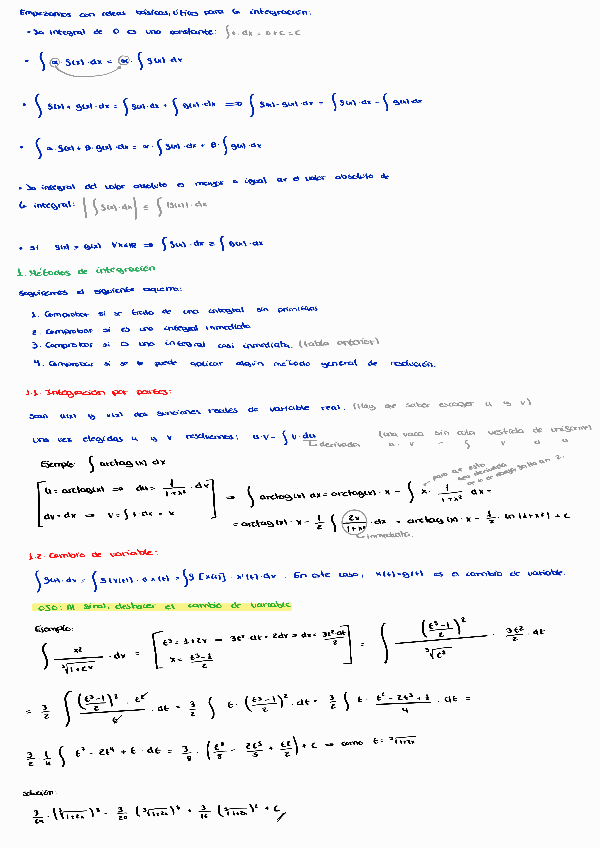 Empezamos con ideas básicas, útiles para la integración:
• La integral de 0 es una constante: ∫ 0 · dx = 0 + C = C
• ∫ α · f(x) · dx = α · ∫ f(x) dx
• ∫ f(x) + g(x) · dx = ∫ f(x) · dx + ∫ g(x) · dx ⇒ ∫ f(x) - g(x) · dx = ∫ f(x) · dx - ∫ g(x) dx
• ∫ α · f(x) + β · g(x) · dx = α · ∫ f(x) · dx + β · ∫ g(x) · dx
• La integral del valor absoluto es menor o igual que el valor absoluto de
la integral: |∫ f(x) · dx| ≤ ∫ |f(x)| · dx
• Si f(x) = g(x) ∀x∈ℝ ⇒ ∫ f(x) · dx = ∫ g(x) · dx
1. Métodos de integración
Seguiremos el siguiente esquema:
1. Comprobar si se trata de una integral sin primitivas
2. Comprobar si es una integral inmediata
3. Comprobar si es una integral casi inmediata. (tabla anterior)
4. Comprobar si se le puede aplicar algún método general de resolución.
1.1. Integración por partes:
Sean u(x) y v(x) dos funciones reales de variable real. (Hay que saber escoger u y v)
Una vez elegidas u y v resolvemos: u · v - ∫ v · du (una vaca sin cola vestida de uniforme)
derivada u · v - ∫ v d u
Ejemplo: ∫ arctag(x) dx
u = arctag(x) ⇒ du = 1/(1+x²) · dx
dv = dx ⇒ v = ∫ 1 · dx = x
⇒ ∫ arctag(x) dx = arctag(x) · x - ∫ x · 1/(1+x²) dx =
para que esto sea derivada
= arctag(x) · x - 1/2 ∫ 2x/(1+x²) · dx = arctag(x) · x - 1/2 · ln(1+x²) + C
inmediata.
1.2. Cambio de variable:
∫ f(x) · dx = ∫ f[x(t)] · x'(t) · dx. En este caso, x(t) = g(t) es el cambio de variable.
OJO: Al final, deshacer el cambio de variable
Ejemplo:
∫ x²/∛(1+2x) · dx = [t³ = 1+2x ⇒ 3t² dt = 2dx ⇒ dx = 3t² dt/2 x = (t³-1)/2] = ∫ ((t³-1)/2)²/∛t³ · 3t²/2 · dt
= 3/2 ∫ ((t³-1)/2)² · t²/t · dt = 3/2 ∫ t · ((t³-1)/2)² · dt = 3/2 ∫ t · (t⁶ - 2t³ + 1)/4 · dt =
3/2 · 1/4 ∫ t⁷ - 2t⁴ + t · dt = 3/8 · (t⁸/8 - 2t⁵/5 + t²/2) + C ⇒ como t = ∛(1+2x)
Solución:
3/64 · (∛(1+2x))⁸ - 3/20 (∛(1+2x))⁵ + 3/16 (∛(1+2x))² + C